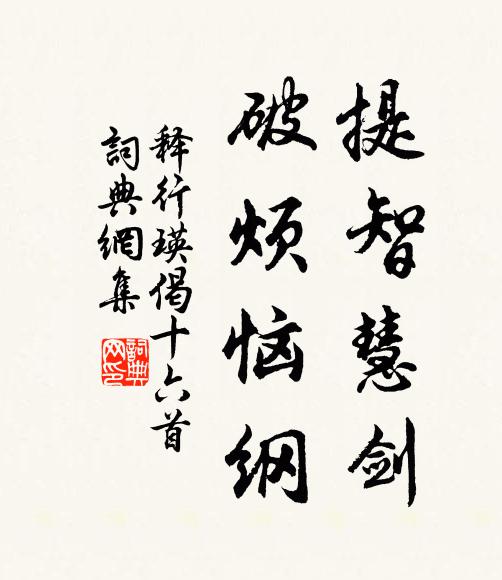 提智慧剑
破烦恼纲
释行瑛偈十六首
詞典網集
詞典
网印